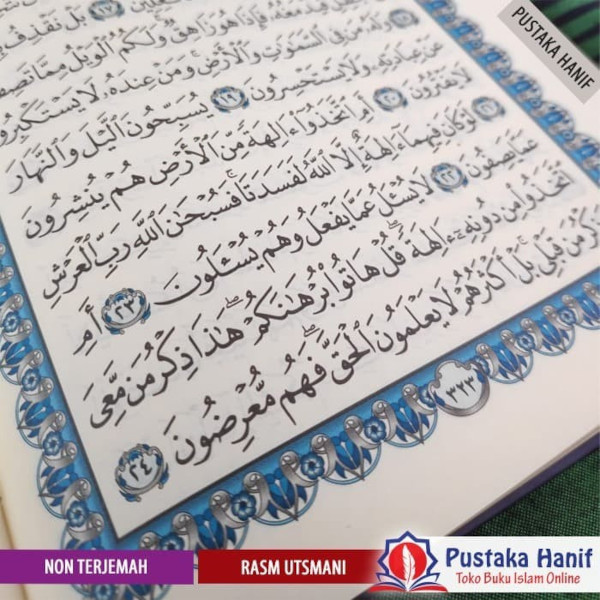 PUSTAKA HANIF
فَٰعِلِينَ ١٧ بَلْ نَقْذِفُ
فَيَدْمَغُهُۥ فَإِذَا هُوَ زَاهِقٌ ۚ وَلَكُمُ ٱلْوَيْلُ مِمَّا
وَلَهُۥ مَن فِى ٱلسَّمَٰوَٰتِ وَٱلْأَرْضِ ۚ وَمَنْ عِندَهُۥ لَا
عَنْ عِبَادَتِهِۦ وَلَا يَسْتَحْسِرُونَ ١٩ يُسَبِّحُونَ ٱلَّيْلَ وَٱلنَّهَارَ
لَا يَفْتُرُونَ ٢٠ أَمِ ٱتَّخَذُوٓا۟ ءَالِهَةً مِّنَ ٱلْأَرْضِ هُمْ يُنشِرُونَ
٢١ لَوْ كَانَ فِيهِمَآ ءَالِهَةٌ إِلَّا ٱللَّهُ لَفَسَدَتَا ۚ فَسُبْحَٰنَ ٱللَّهِ رَبِّ ٱلْعَرْشِ
عَمَّا يَصِفُونَ ٢٢ لَا يُسْـَٔلُ عَمَّا يَفْعَلُ وَهُمْ يُسْـَٔلُونَ ٢٣ أَمِ
ٱتَّخَذُوا۟ مِن دُونِهِۦٓ ءَالِهَةً ۖ قُلْ هَاتُوا۟ بُرْهَٰنَكُمْ ۖ هَٰذَا ذِكْرُ مَن مَّعِىَ
وَذِكْرُ مَن قَبْلِى ۗ بَلْ أَكْثَرُهُمْ لَا يَعْلَمُونَ ٱلْحَقَّ ۖ فَهُم مُّعْرِضُونَ ٢٤
٣٢٣
NON TERJEMAH
RASM UTSMANI
Pustaka Hanif
Toko Buku Islam Online